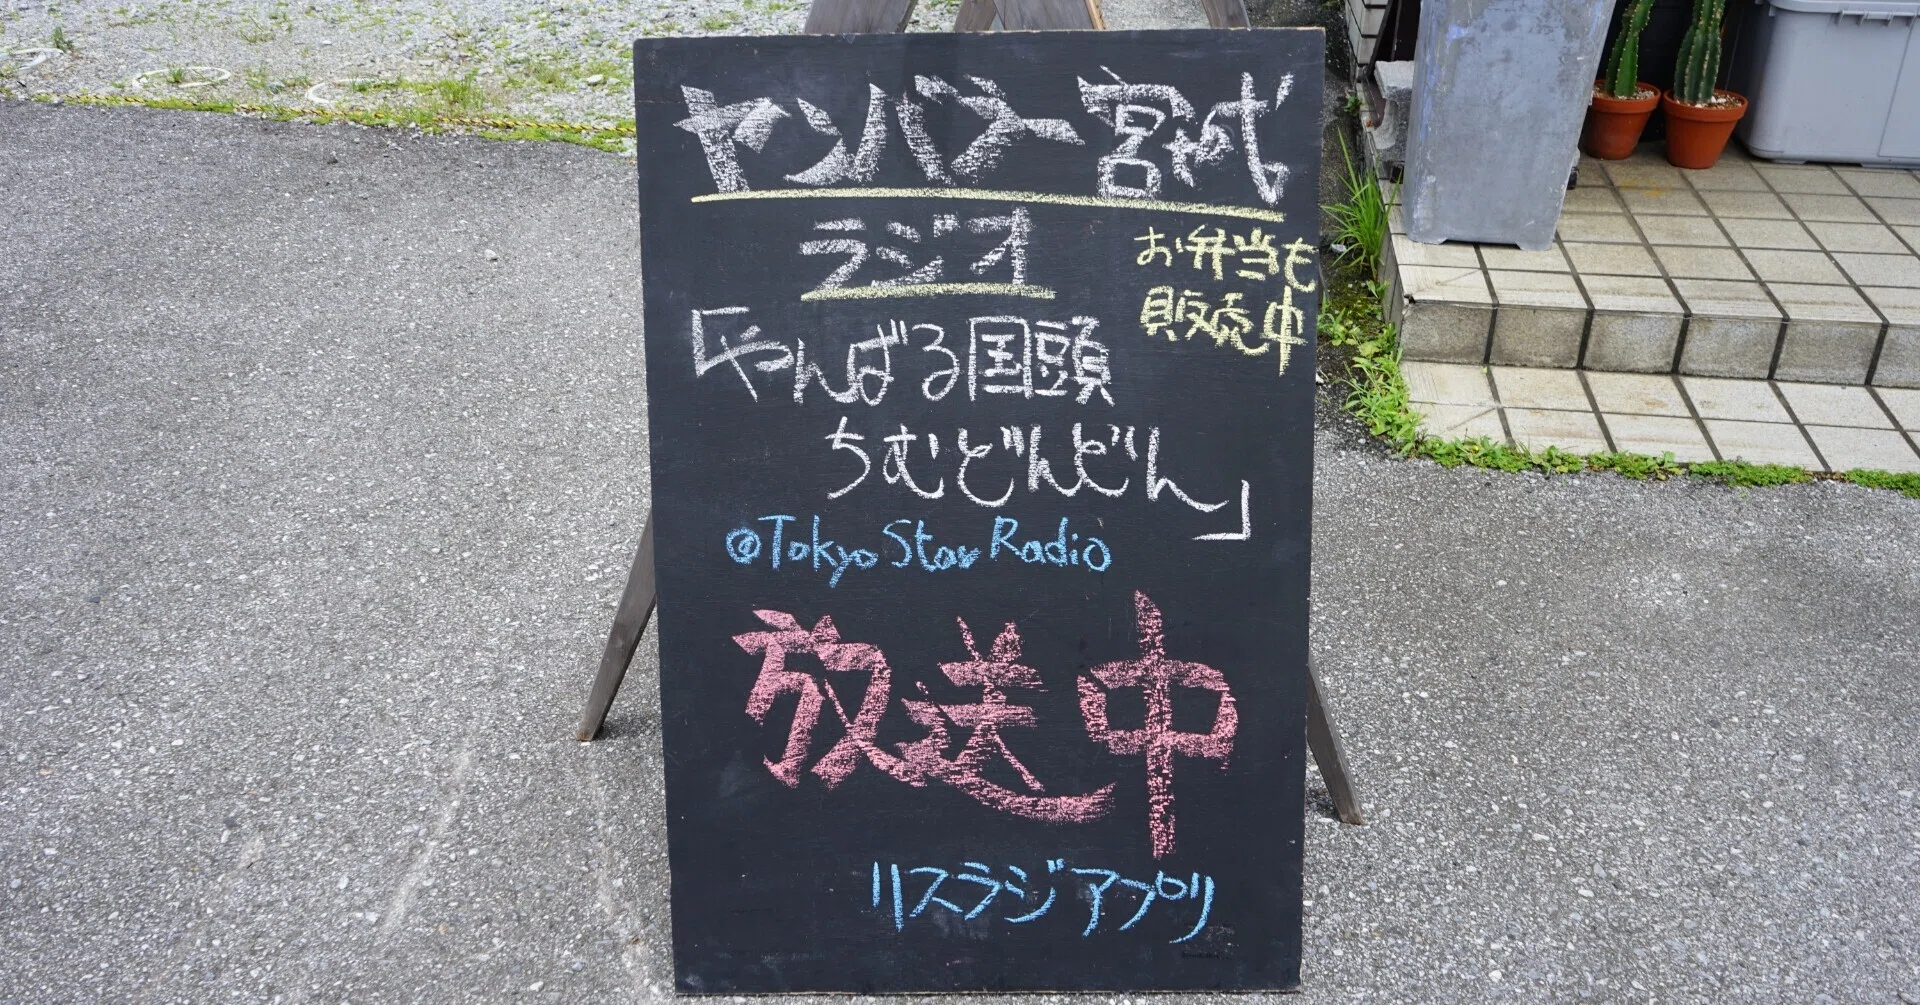 ヤンバナー宮城
ラジオ
お弁当も
販売中
「やんばる国頭
ちむどんどん」
@Tokyo Star Radio
放送中
リスラジアプリ